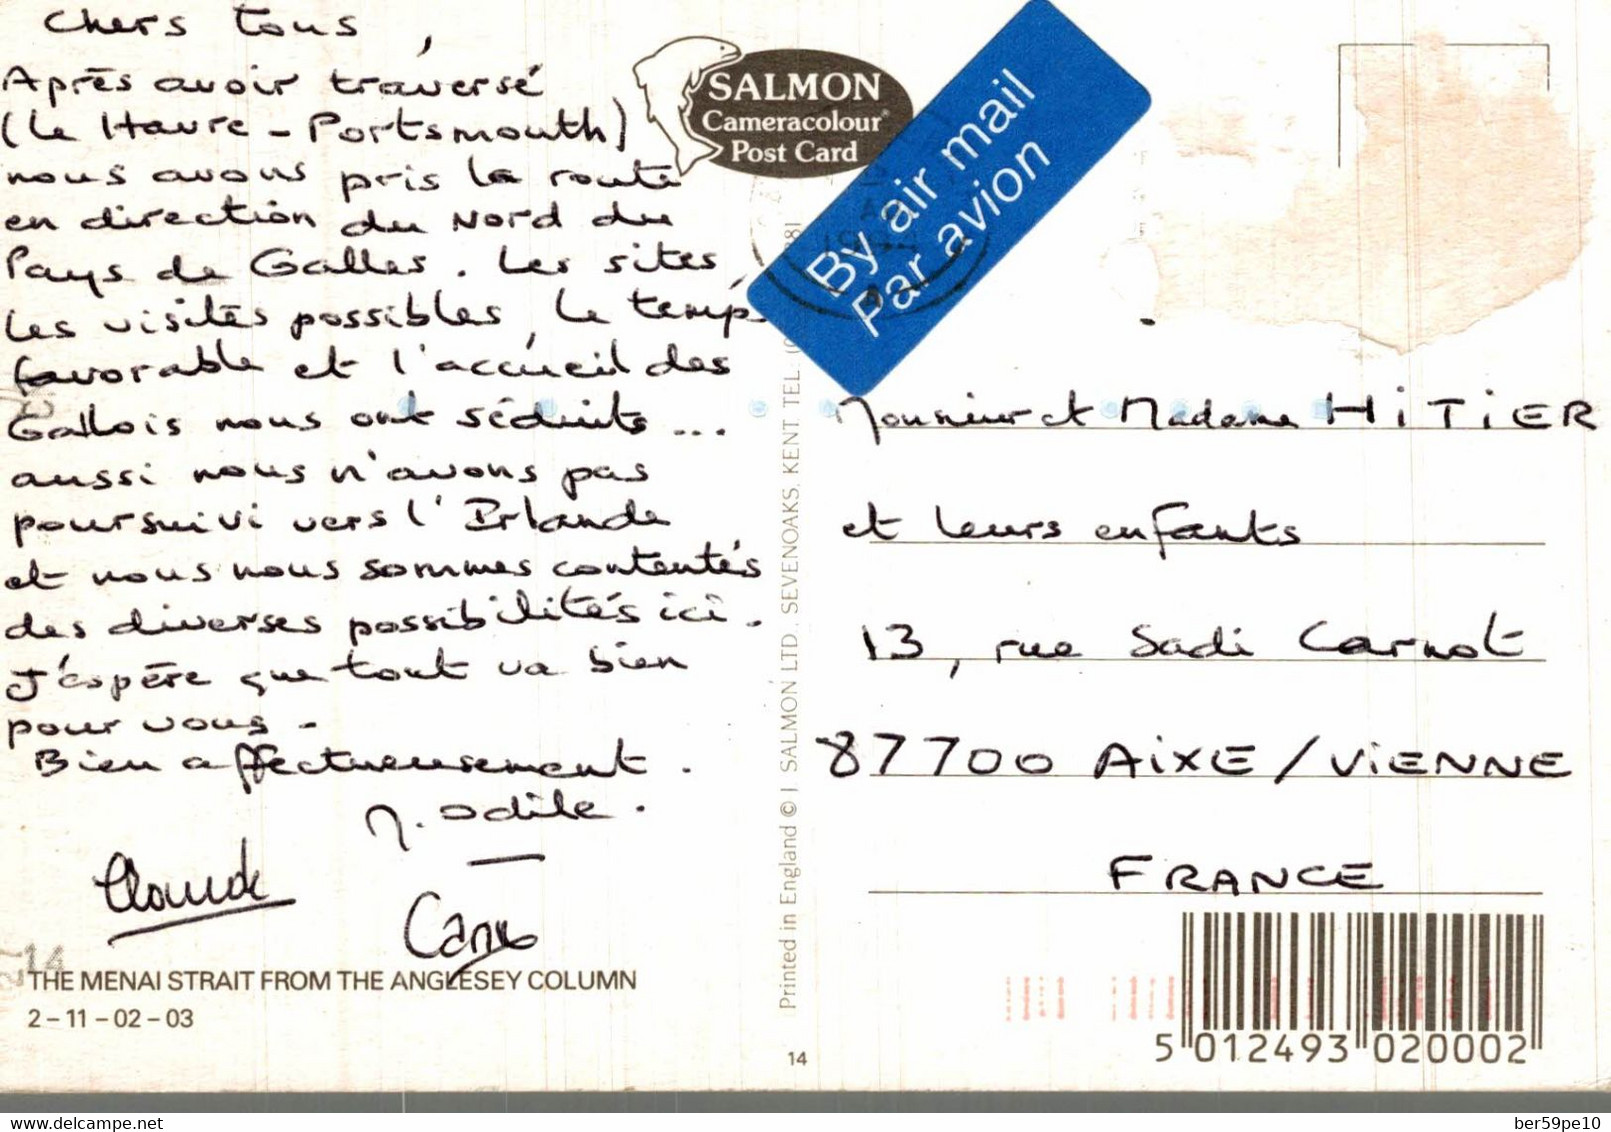 Chers tous,
Après avoir traversé
(Le Havre - Portsmouth)
nous avons pris la route
en direction du Nord du
Pays de Galles. Les sites,
les visites possibles, le temps
favorable et l'accueil des
Gallois nous ont séduits...
aussi nous n'avons pas
poursuivi vers l'Irlande
et nous nous sommes contentés
des diverses possibilités ici.
J'espère que tout va bien
pour vous -
Bien affectueusement.
M. Odile.
Claude
THE MENAI STRAIT FROM THE ANGLESEY COLUMN
2-11-02-03
14
SALMON
Cameracolour®
Post Card
By air mail
Par avion
Printed in England © J. SALMON LTD., SEVENOAKS, KENT. TEL.
14
Monsieur et Madame HiTiER
et leurs enfants
13, rue Sadi Carnot
87700 AiXE/ViENNE
FRANCE
5 012493 020002
ber59pe10